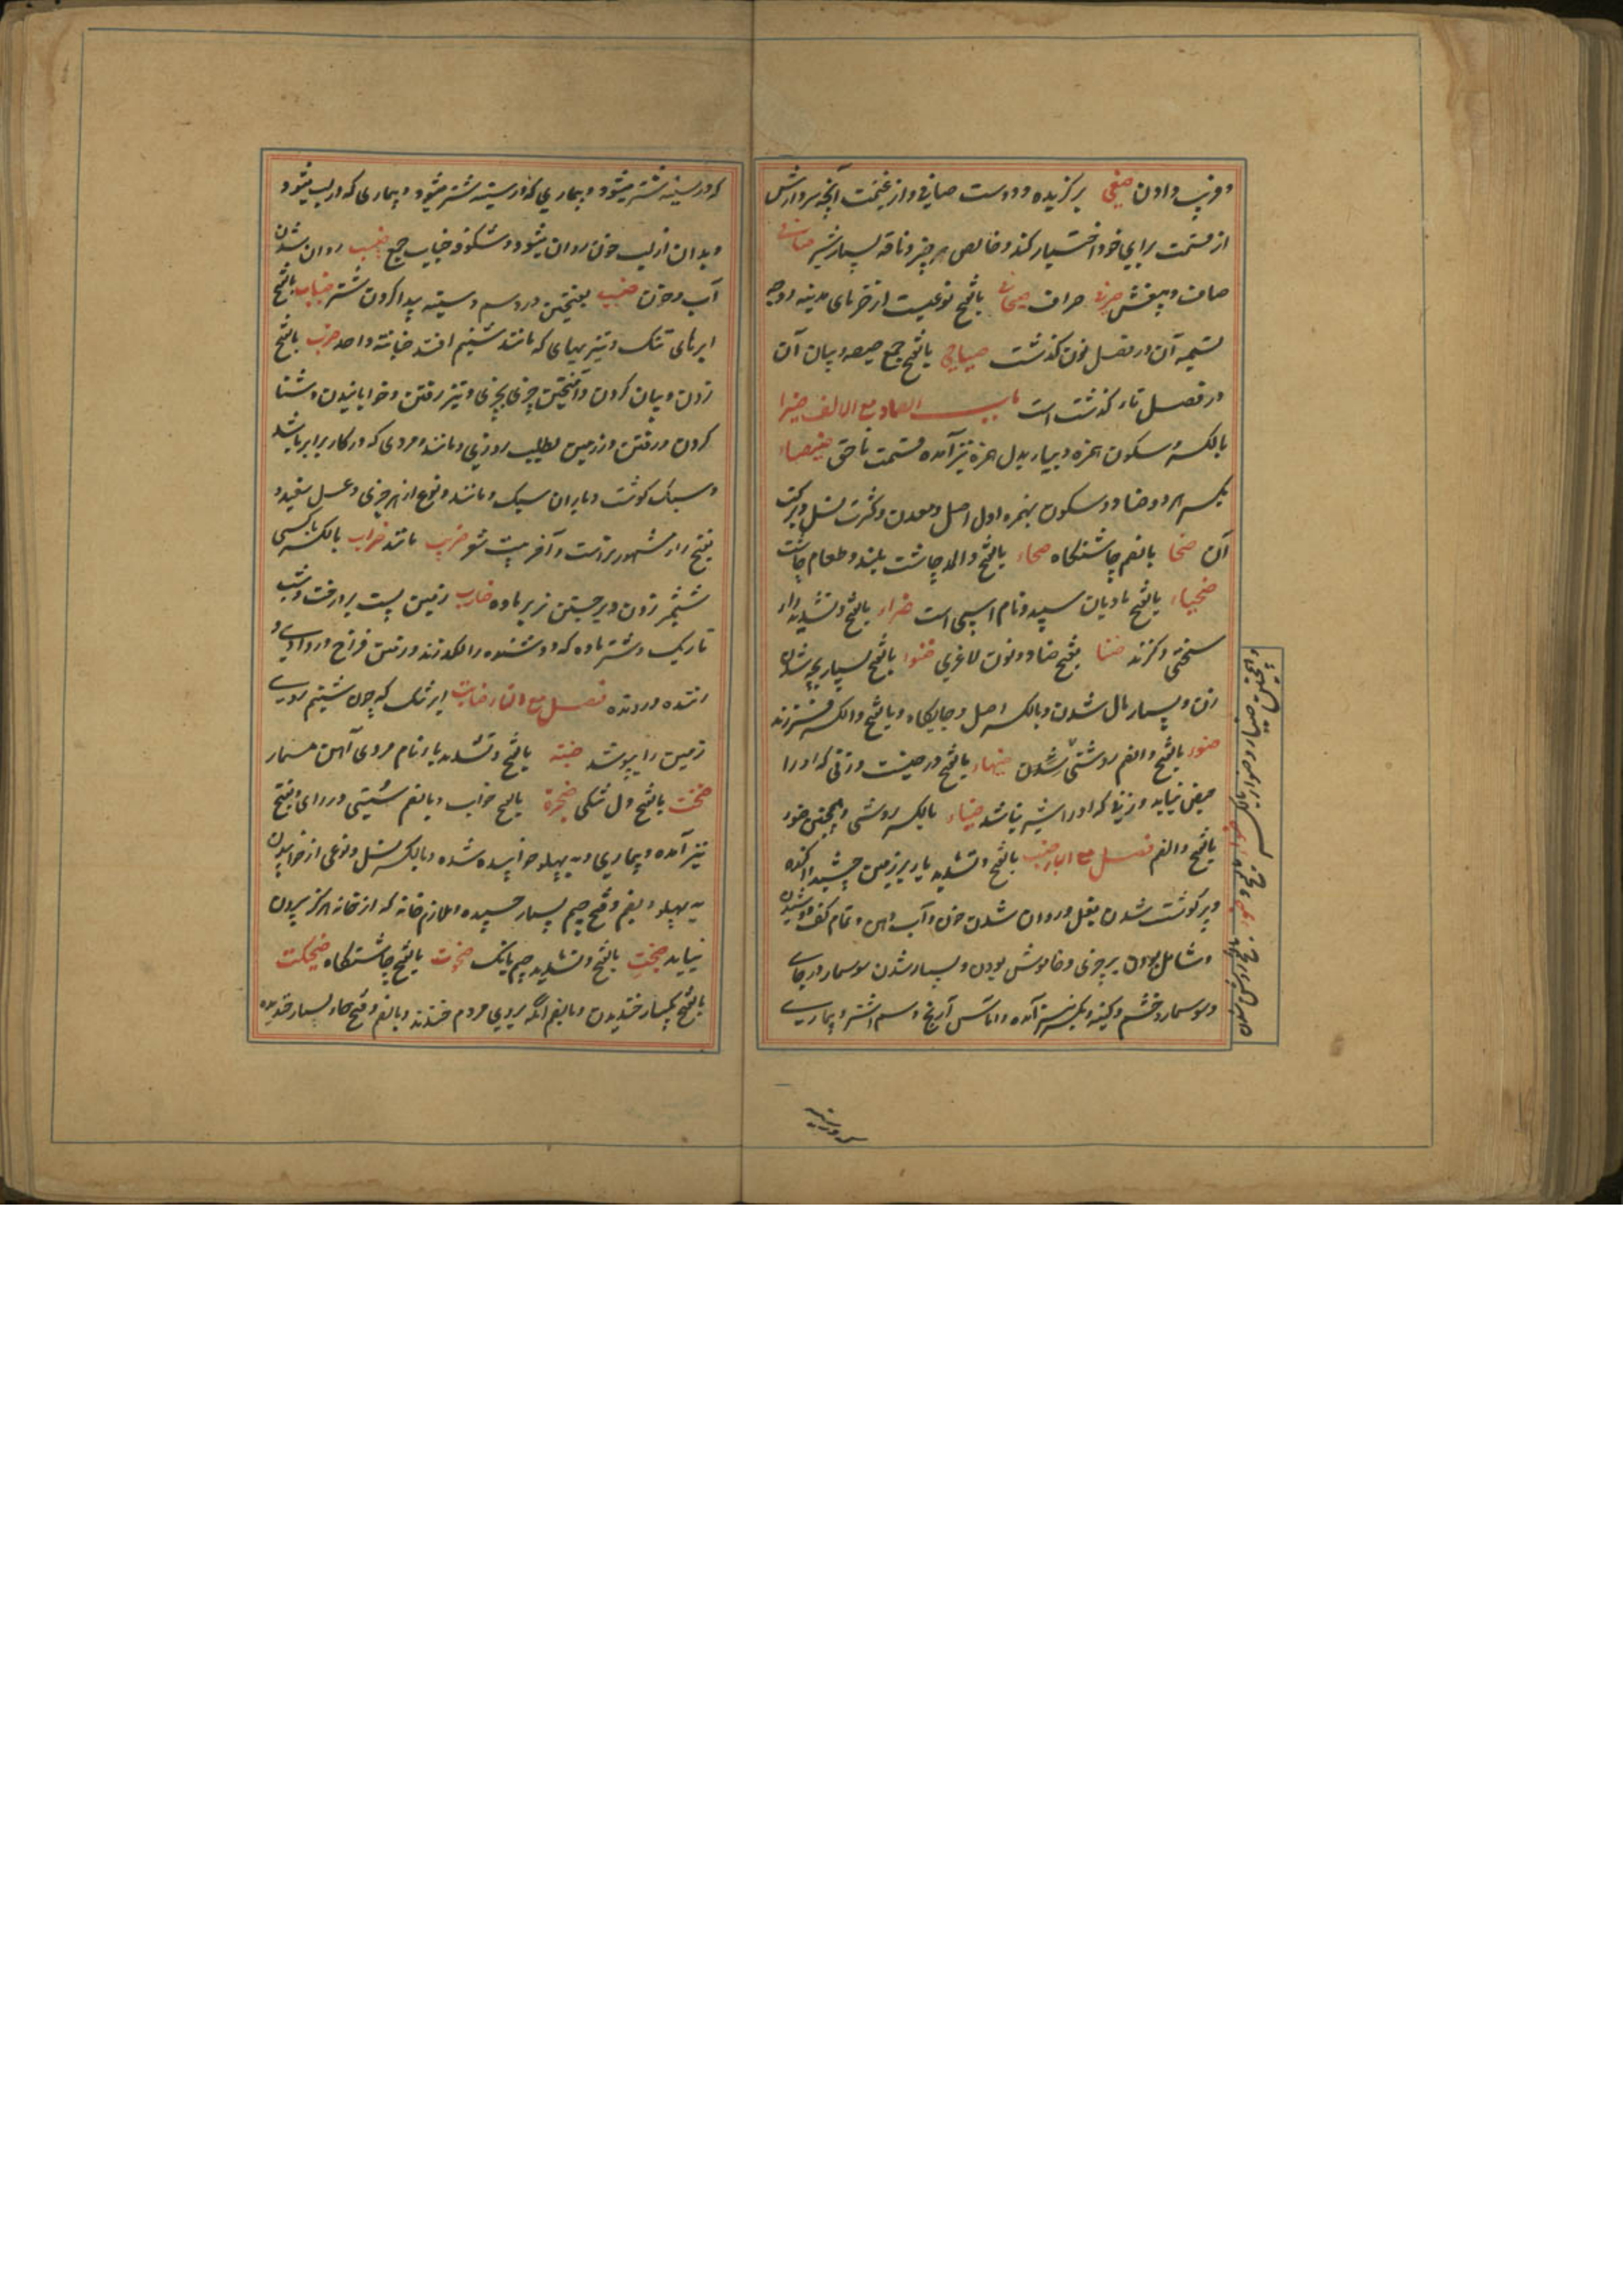 و فریب دادن صفی برگزیده و دوست صافی و از غنیمت آنچه سردارش
از قسمت برای خود اختیار کند و خالص هر چیز و ناقه بسیار شیر
صاف و بیغش صرفی صراف صیحانی بالفتح نوعیست از خرمای مدینه و وجه
تسمیه آن در فصل نون گذشت صیاصی بالفتح جمع صیصه و بیان آن
در فصل تاء گذشت است باب الضاد مع الالف ضیزا
بالکسر و سکون همزه و بیاء بدل همزه نیز آمده قسمت ناحق ضیضاء
بکسر هر دو ضاد و سکون همزه اول اصل و معدن و کثرت نسل و برکت
آن ضحا بالضم چاشتگاه ضحاء بالفتح والمد چاشت بلند و طعام چاشت
ضحیاء بالفتح مادیان سپید و نام اسپی است ضراء بالفتح و تشدید راء
سختی و گزند ضنا بفتح ضاد و نون لاغری ضنوا بالفتح بسیار بچه شدن
زن و بسیار مال شدن و بالکسر اصل و جایگاه و بالفتح والکسر فرزند
ضوء بالفتح والضم روشنی شدن ضهیاء بالفتح درختیست و زنی که او را
حیض نیاید و زنی که او را شیر نباشد ضیاء بالکسر روشنی و همچنین ضوء
بالفتح والضم فصل مع الباء ضب بالفتح و تشدید باء بر زمین چسپیدن
و پر گوشت شدن بغل و روان شدن خون و آب دهن و تمام کف دوشیدن
و شامل بودن بر چیزی و خاموش بودن و بسیار شدن سوسمار در جای
و سوسمار و خشم و کینه و بکسر نیز آمده و آماس آرنج و سم اشتر و بیماری
در سینه
که در سینه شتر میشود و بیماری که در سینه شتر میشود و بیماری که در لب میشود
و بدان از لب خون روان میشود و شکوفه ضباب جمع ضبیب روان شدن
آب و خون ضبب بفتحتین درد سم و سینه پیدا کردن شتر ضباب بالفتح
ابرهای تنک و تیزیهای که مانند شبنم افتد ضبابة واحد ضرب بالفتح
زدن و بیان کردن و آمیختن چیزی بچیزی و تیز رفتن و خوابانیدن و شنا
کردن و رفتن در زمین بطلب روزی و مانند و مردی که در کار برابر باشد
و سبک گوشت و باران سبک و مانند و نوع از هر چیزی و عسل سفید و
بفتح راء مشهورتر است و آخر بیت شعر ضریب مانند ضراب بالکسر با کسی
شمشیر زدن و برجستن نر بر ماده ضارب زمین پست پر درخت و شب
تاریک و شتر ماده که دوشنده را لگد زند و زمین فراخ در وادی و
زننده و رونده فصل مع التاء ضبابت ابر تنک که چون شبنم روی
زمین را بپوشد ضبة بالفتح و تشدید باء نام مردی آهن مسمار
بالفتح دل تنگی ضجرة بالفتح خواب و بالضم سستی در رای و بفتح
نیز آمده و بیماری و به پهلو خوابیده شده و بالکسر کسل و نوعی از خوابیدن
به پهلو و بضم و فتح جیم بسیار خسپیده و ملازم خانه که از خانه هرگز بیرون
نیاید ضجت بالفتح و تشدید جیم بانگ ضحوت بالفتح چاشتگاه ضحکت
بالفتح یکبار خندیدن و بالضم آنکه بروی مردم خندند و بالضم و فتح حاء بسیار خندیده